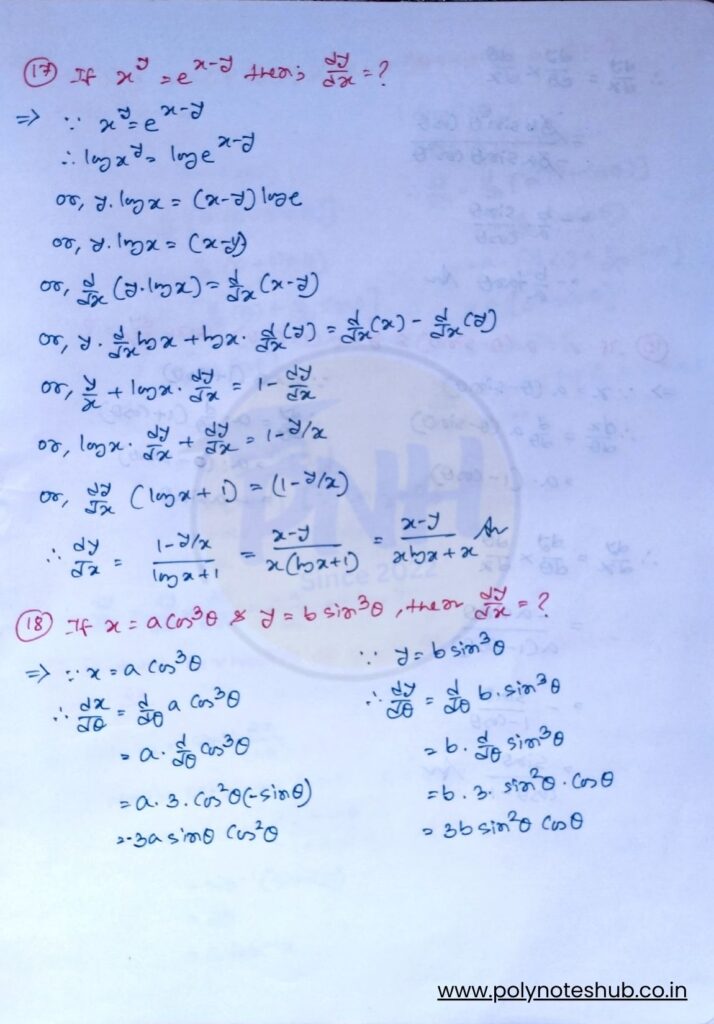 (17) If x^y = e^{x-y} then; dy/dx = ?
⇒ ∵ x^y = e^{x-y}
∴ log x^y = log e^{x-y}
or, y.log x = (x-y) log e
or, y.log x = (x-y)
or, d/dx (y.log x) = d/dx (x-y)
or, y. d/dx log x + log x. d/dx (y) = d/dx (x) - d/dx (y)
or, y/x + log x. dy/dx = 1 - dy/dx
or, log x. dy/dx + dy/dx = 1 - y/x
or, dy/dx (log x + 1) = (1 - y/x)
∴ dy/dx = (1 - y/x)/(log x + 1) = (x-y)/(x(log x + 1)) = (x-y)/(x log x + x) An
PNH
Since 2022
(18) If x = a cos^3θ & y = b sin^3θ, then dy/dx = ?
⇒ ∵ x = a cos^3θ
∴ dx/dθ = d/dθ a cos^3θ
= a. d/dθ cos^3θ
= a. 3. cos^2θ (-sinθ)
= -3a sinθ cos^2θ
∵ y = b sin^3θ
∴ dy/dθ = d/dθ b. sin^3θ
= b. d/dθ sin^3θ
= b. 3. sin^2θ. cosθ
= 3b sin^2θ cosθ
www.polynoteshub.co.in